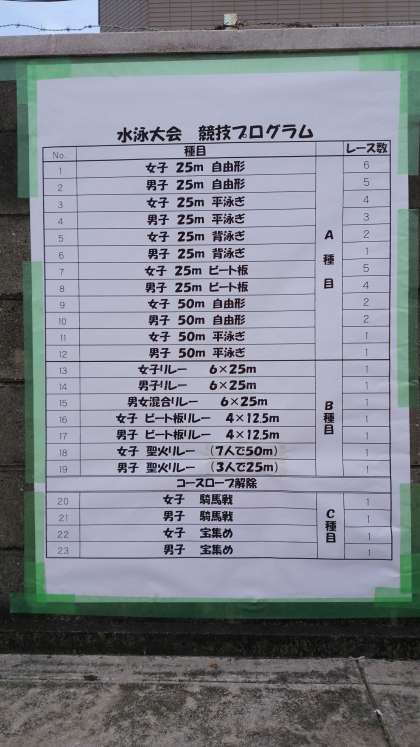 水泳大会 競技プログラム
No. 種目 レース数
1 女子 25m 自由形 6
2 男子 25m 自由形 5
3 女子 25m 平泳ぎ 4
4 男子 25m 平泳ぎ 3
5 女子 25m 背泳ぎ A 2
6 男子 25m 背泳ぎ 種 1
7 女子 25m ビート板 5
8 男子 25m ビート板 目 4
9 女子 50m 自由形 2
10 男子 50m 自由形 2
11 女子 50m 平泳ぎ 1
12 男子 50m 平泳ぎ 1
13 女子リレー 6×25m 1
14 男子リレー 6×25m 1
15 男女混合リレー 6×25m B 1
16 女子 ビート板リレー 4×12.5m 種 1
17 男子 ビート板リレー 4×12.5m 目 1
18 女子 聖火リレー (7人で50m) 1
19 男子 聖火リレー (3人で25m) 1
コースロープ解除
20 女子 騎馬戦 1
21 男子 騎馬戦 C 1
22 女子 宝集め 種 1
23 男子 宝集め 目 1